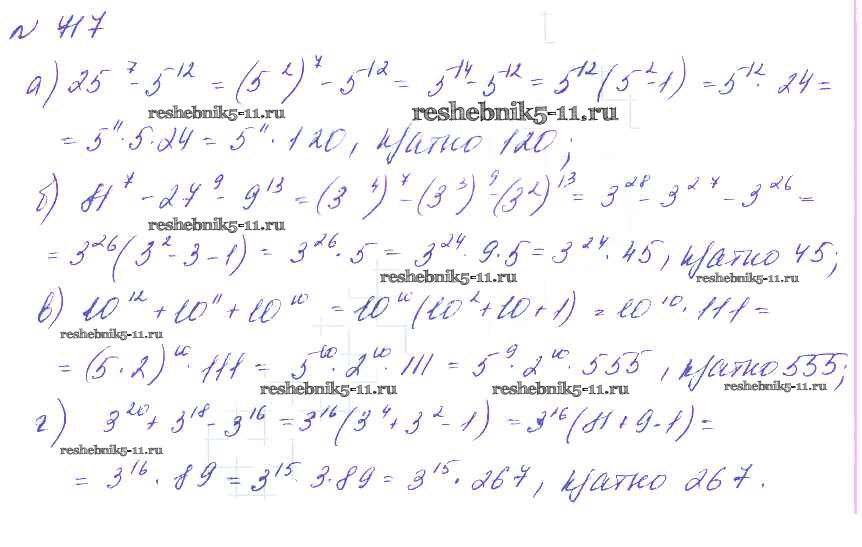 № 717
а) 25⁷ - 5¹² = (5²)⁷ - 5¹² = 5¹⁴ - 5¹² = 5¹²(5² - 1) = 5¹² · 24 =
reshebnik5-11.ru reshebnik5-11.ru
= 5¹¹ · 5 · 24 = 5¹¹ · 120, кратно 120;
б) 81⁷ - 27⁹ - 9¹³ = (3⁴)⁷ - (3³)⁹ - (3²)¹³ = 3²⁸ - 3²⁷ - 3²⁶ =
reshebnik5-11.ru
= 3²⁶(3² - 3 - 1) = 3²⁶ · 5 = 3²⁴ · 9 · 5 = 3²⁴ · 45, кратно 45;
reshebnik5-11.ru reshebnik5-11.ru
в) 10¹² + 10¹¹ + 10¹⁰ = 10¹⁰(10² + 10 + 1) = 10¹⁰ · 111 =
reshebnik5-11.ru
= (5 · 2)¹⁰ · 111 = 5¹⁰ · 2¹⁰ · 111 = 5⁹ · 2¹⁰ · 555, кратно 555;
reshebnik5-11.ru reshebnik5-11.ru reshebnik5-11.ru
г) 3²⁰ + 3¹⁸ - 3¹⁶ = 3¹⁶(3⁴ + 3² - 1) = 3¹⁶(81 + 9 - 1) =
reshebnik5-11.ru
= 3¹⁶ · 89 = 3¹⁵ · 3 · 89 = 3¹⁵ · 267, кратно 267.